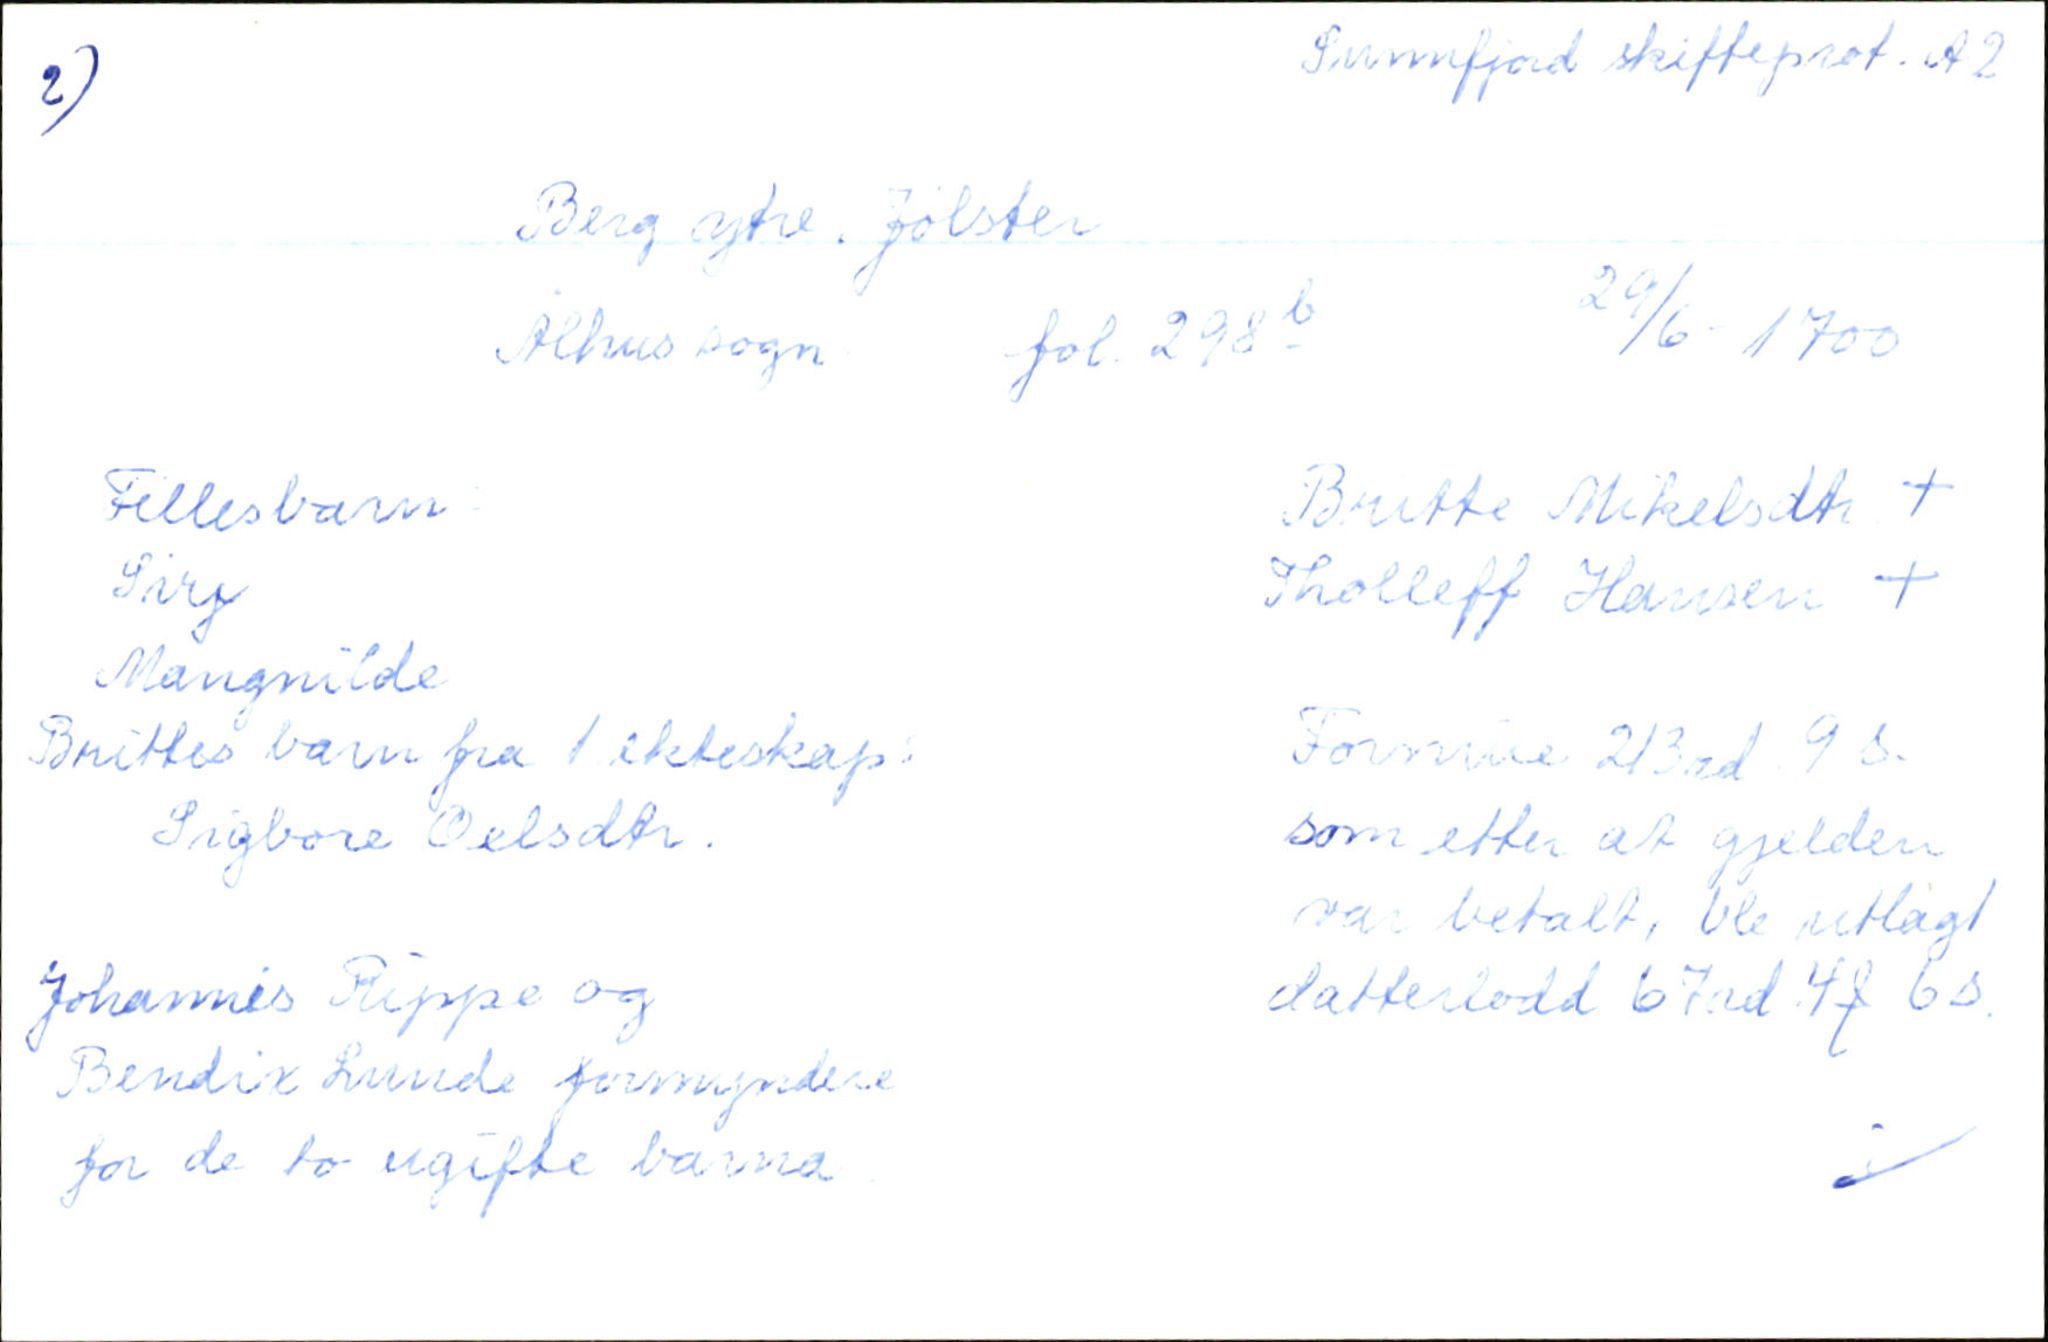 2)
Sunnfjord skifteprot. A2
Berg ytre. Jölster
Ålhus sogn fol. 298 b 29/6 - 1700
Fellesbarn:
Siry
Mangnilde
Brittes barn fra 1 ekteskap:
Sigbore Oelsdtr.
Johannes Rippe og
Bendix Lunde formyndere
for de to ugifte barna
Britte Mikelsdtr. +
Tholleff Hansen +
Formue 213 rd. 9 s.
som etter at gjelden
var betalt, ble utlagt
datterlodd 67 rd. 4 6 s.